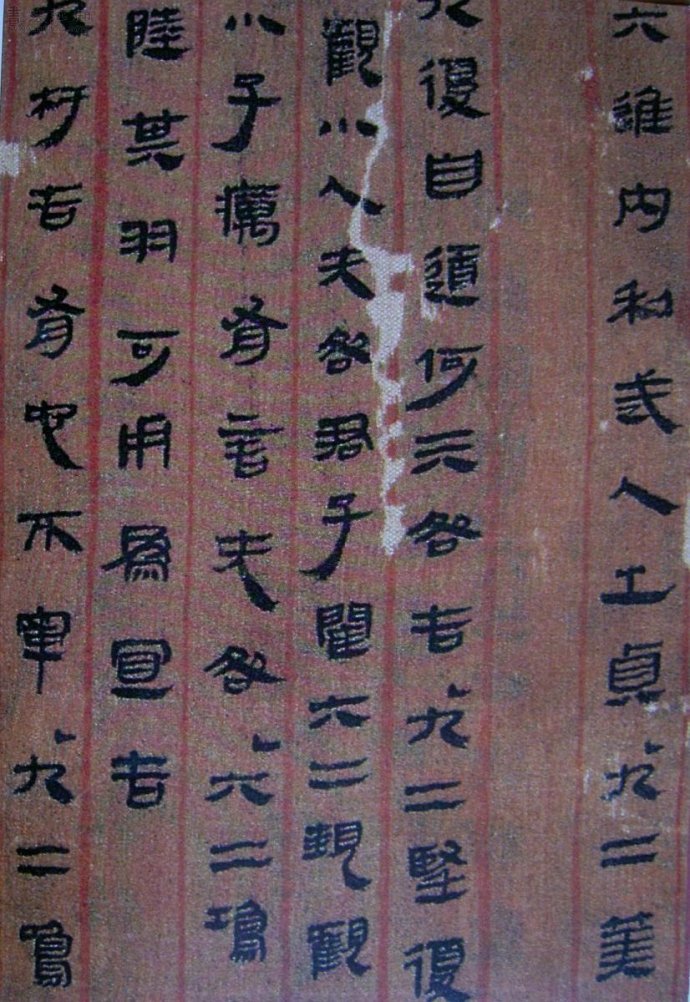 六進內利武人之貞九二
九復自道何亓咎吉九二堅復
觀小人无咎君子閵六二䙺觀
小子癘有言无咎六二鳿
陸其羽可用為宜吉
九杅吉有它不寧九二鳴